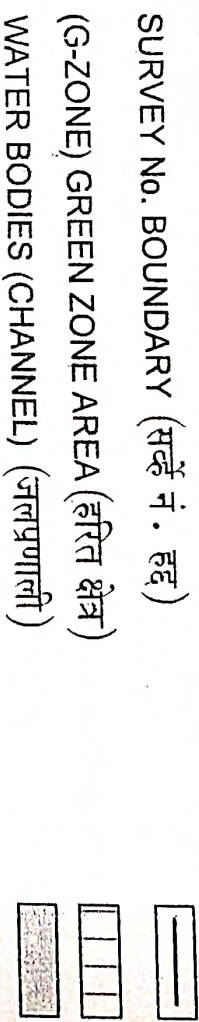 SURVEY No. BOUNDARY (सर्व्हे नं. हद्द)
(G-ZONE) GREEN ZONE AREA (हरित क्षेत्र)
WATER BODIES (CHANNEL) (जलप्रणाली)